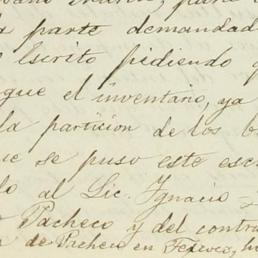 parte demandad
escrito pidiendo
gue el inventario, ya
la particion de los b
ue se puso este esc
do al Lic. Ignacio
Pacheco y del contra
de Pacheco en